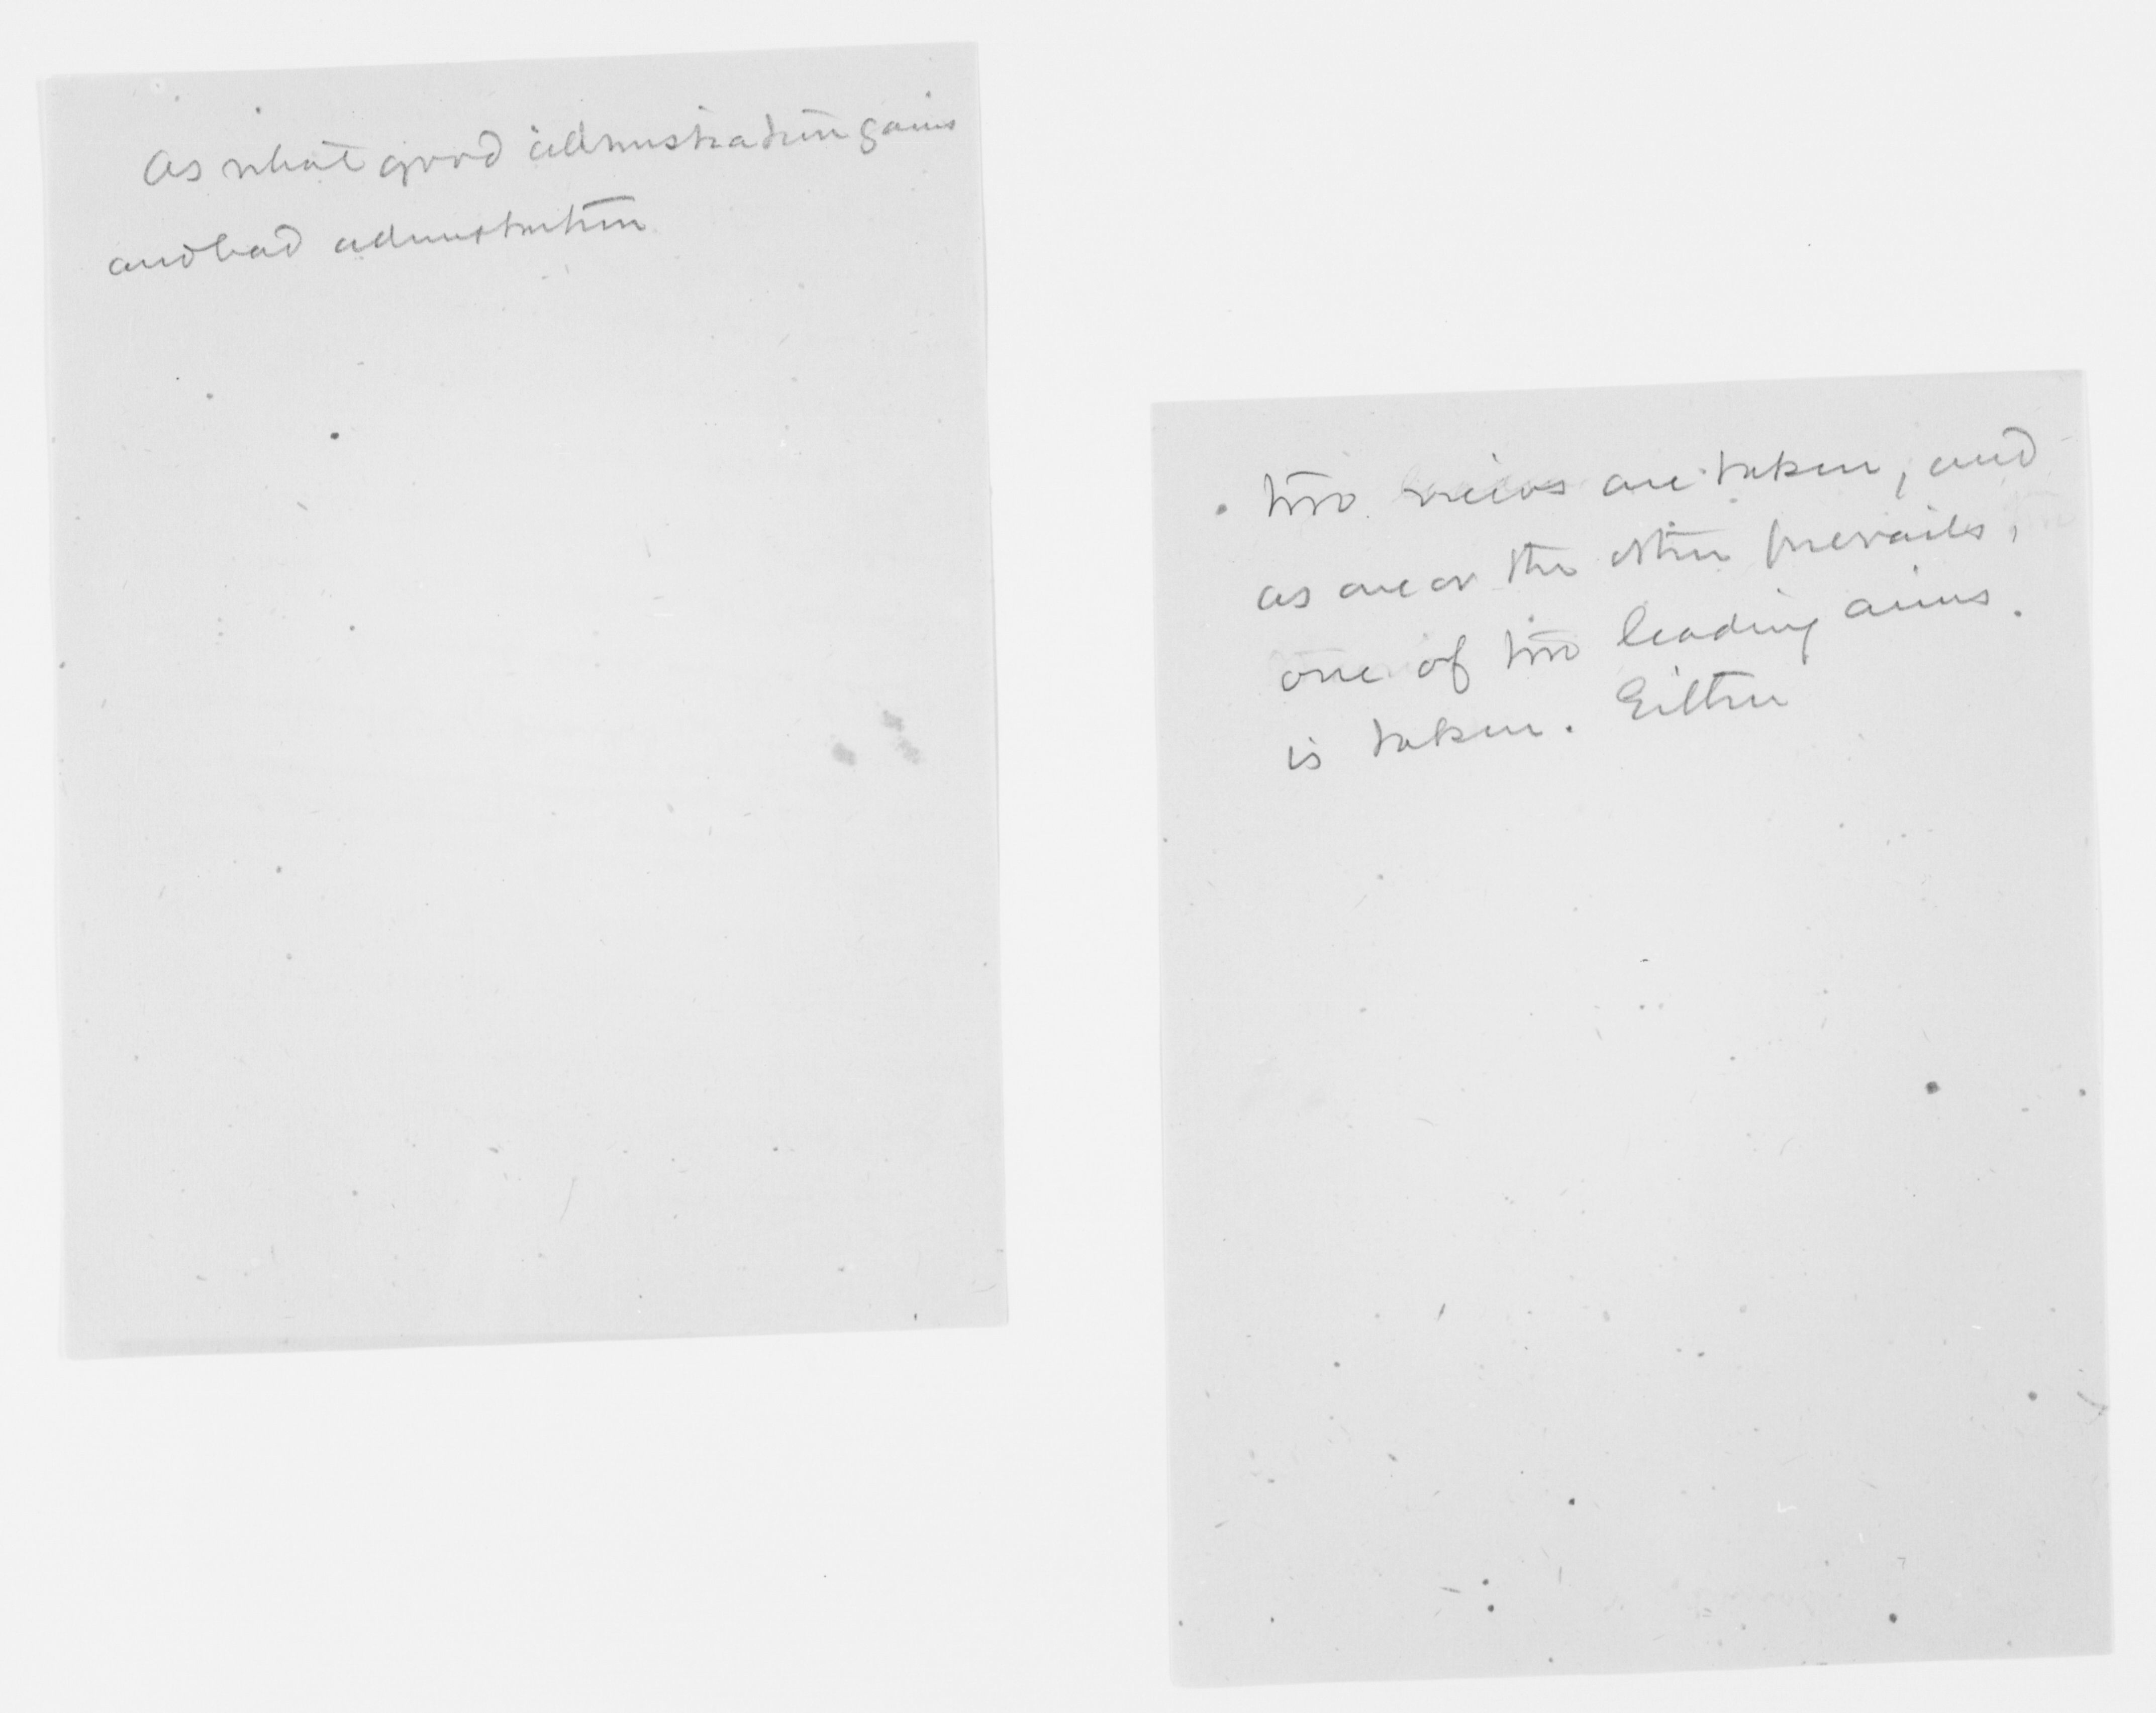 As what good administration gains
and bad administration
two views are taken, and
as one or the other prevails,
one of two leading aims.
is taken. Either